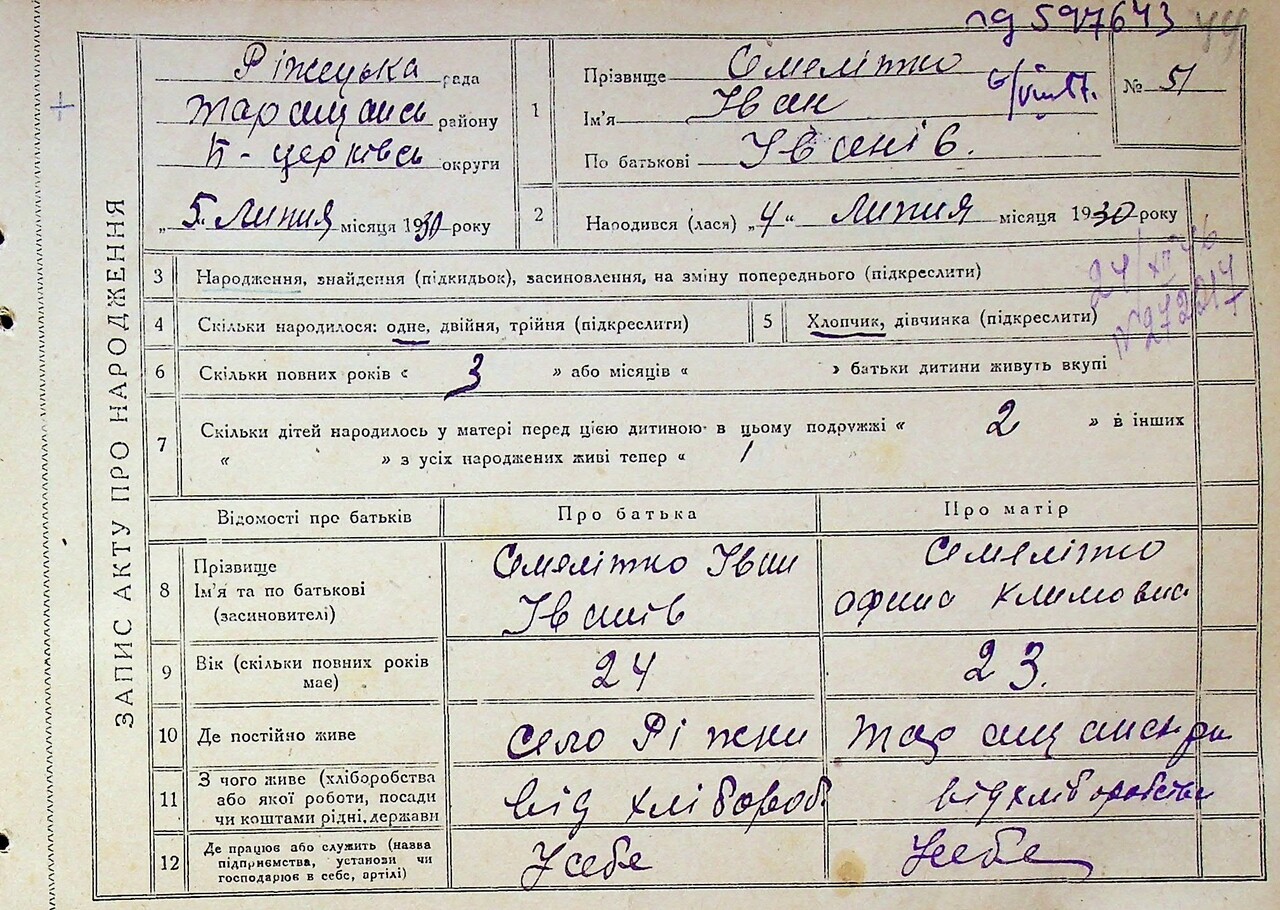 пд 597643
Ріжецька рада
Таращансь району
Б-церківсь округи
„ 5. Липня місяця 1930 року
ЗАПИС АКТУ ПРО НАРОДЖЕННЯ
1
Прізвище Семелітко
Ім'я Іван
По батькові Іванів.
№ 51
2 Народився (лася) „4“ Липня місяця 1930 року
3 Народження, знайдення (підкидьок), засиновлення, на зміну попереднього (підкреслити)
24/XII 46
4 Скільки народилося: одне, двійня, трійня (підкреслити)
5 Хлопчик, дівчинка (підкреслити)
6 Скільки повних років « 3 » або місяців « » батьки дитини живуть вкупі
7 Скільки дітей народилось у матері перед цією дитиною в цьому подружжі « 2 » в інших
« » з усіх народжених живі тепер « 1
Відомості про батьків Про батька Про матір
8 Прізвище
Ім'я та по батькові
(засиновителі)
Семелітко Іван
Іванів
Семелітко
Климовна
9 Вік (скільки повних років
має)
24
23.
10 Де постійно живе
село Ріжки
Таращанск рн
11 З чого живе (хліборобства
або якої роботи, посади
чи коштами рідні, держави
від хлібороб
від хліборобства
12 Де працює або служить (назва
підприємства, установи чи
господарює в себе, артілі)
У себе
У себе